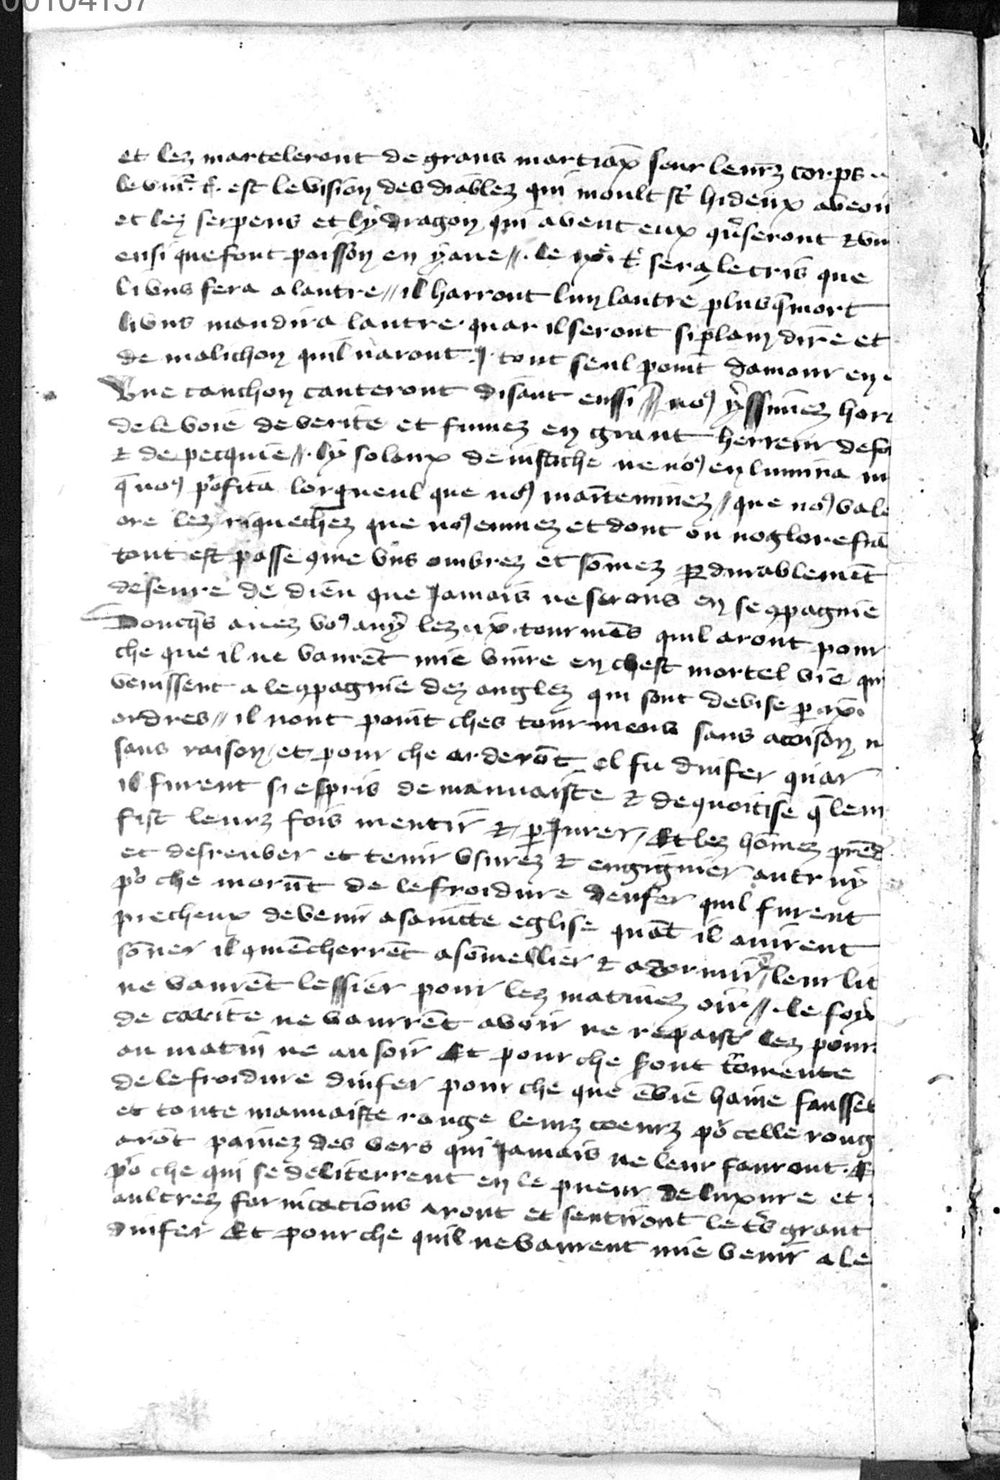 00104157
et lez marteleront de grans martiax̄ seur leurz corps
le viii.e t. est le vision des diablez qui moult st̄ hideux aveoir
et lez serpens et ly dragon qui avent eux q̄seront & viv
ensi que font poisson en yaue // le ix.e t. sera le cris que
li uns fera a lautre // il harront lun lautre plus q̄ mort
li uns maudira lautre quar il seront si plain dire et
de malichon quil naront .j. tout seul point damour en
Une canchon canteront disant enssi // no9 yssimez hors
de le voie de verite et fumez en grant herreur de
& de pecquie // ly solaux de iustiche ne no9 enlumina
q̄ no9 pōfita lorgueul que no9 maintenimez // que no9 vale
ore lez riquechez que no9 eumez et dont on no glorefia
tout est passe 9me uns ombrez et sōmez pardurablement
deseure de dieu que jamais ne serons en se 9pagnie
Doncq̄s avez vo9 auy lez ix. tourmēs quil aront pour
che que il ne vaurēt mie vivre en chest mortel vie q̄
venissent a le 9pagnie dez anglez qui sont devise p̄ ix.
ordres // il nont point ches tourmens sans acoison n
sans raison / et pour che arderōt el fu dinfer quar
il furent si espris de mauvaiste & de quoitise q̄ leur
fist leurz fois mentir & p̄jurer / Et lez hōmez prēd
et desreuber et tenir usurez & engignier autruy
pō che morūt de le froidure denfer quil furent
precheux de venir a saincte eglise quāt il auirent
sōner il 9mēcherrēt a sōmellier & a dormir / leur lit
ne vaurēt lessier pour lez matinez oir // le foy
de carite ne vaurrēt avoir ne repaistr̄ lez pour
au matin ne au soir Et pour che sont tōmente
de le froidure dinfer pour che que ēvie haine fausset
et toute mauvaiste ronge leurz coeurz pō celle roug
arōt painez des vers qui jamais ne leur fauront. E
pō che qui se deliterrent en le pueur de luxure et
aultrez fornications aront et sentiront le t̄s grant
dinfer Et pour che quil ne vaurent mie venir a le